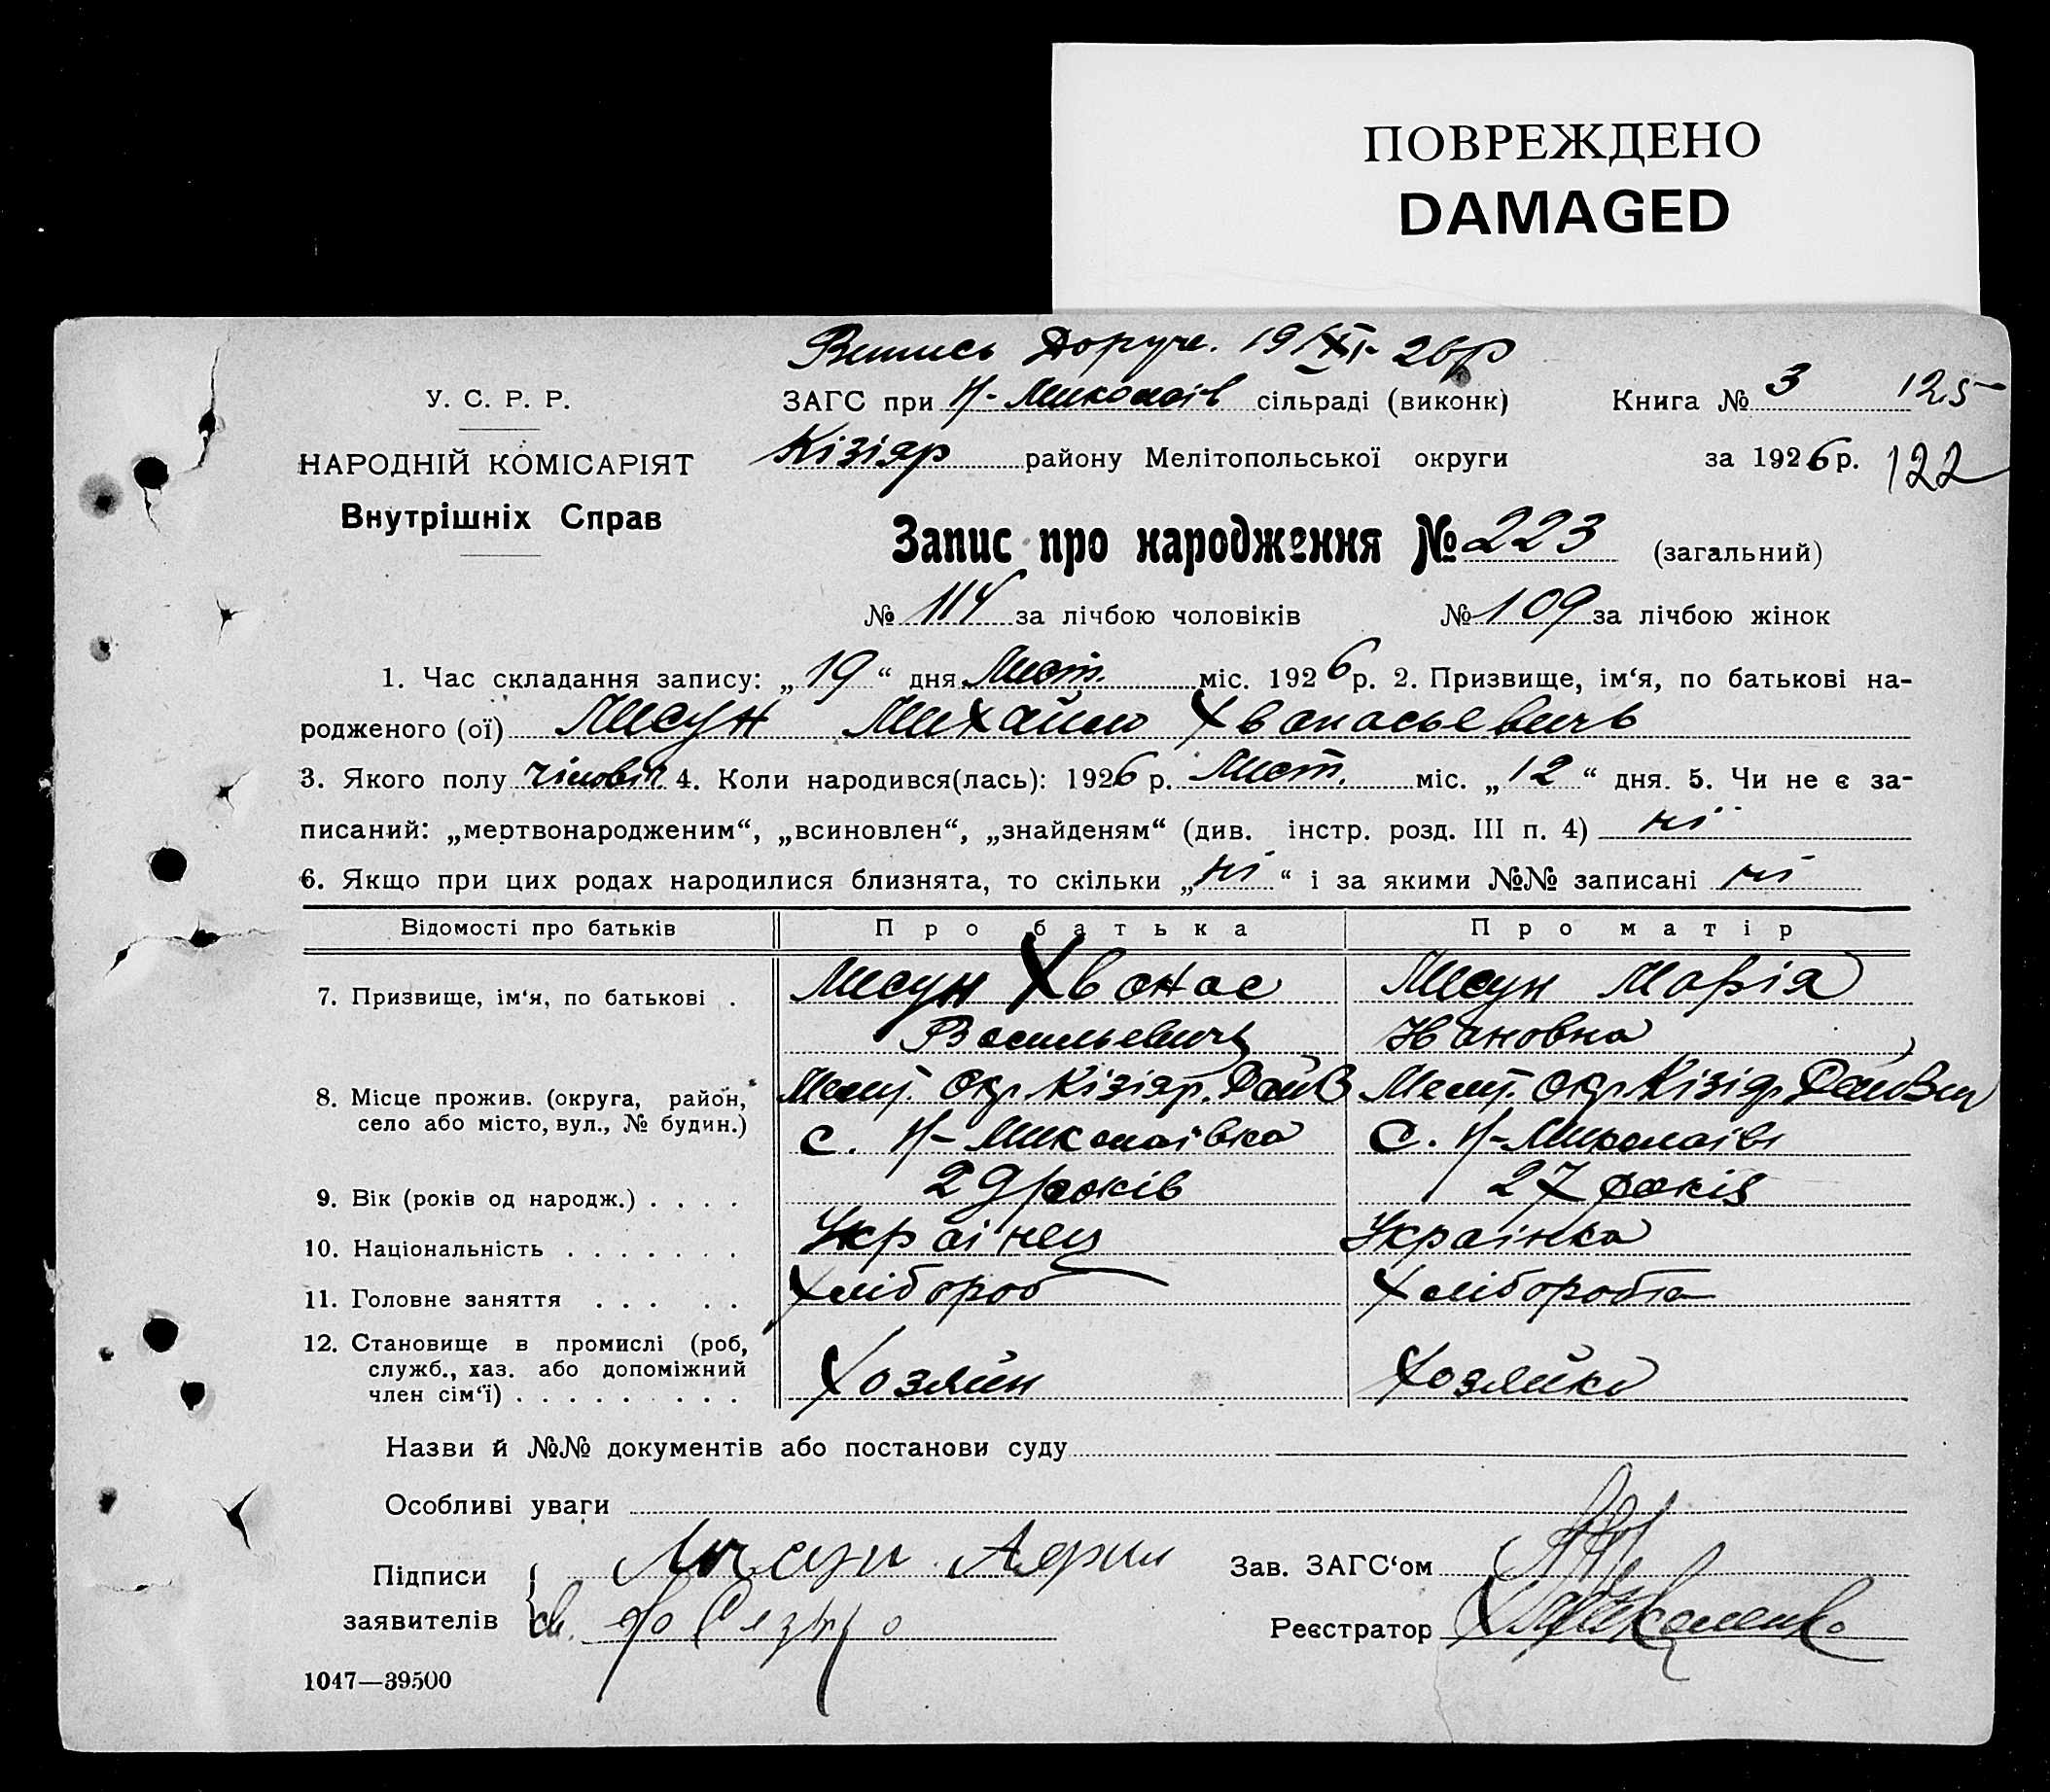 ПОВРЕЖДЕНО
DAMAGED
Випись Доруче. 19/XI- 26р
У. С. Р. Р.
НАРОДНІЙ КОМІСАРІЯТ
Внутрішніх Справ
ЗАГС при Н-Миколаїв сільраді (виконк)
Книга № 3 125
Кізіяр району Мелітопольської округи
за 1926 р. 122
Запис про народження № 223 (загальний)
№ 114 за лічбою чоловіків № 109 за лічбою жінок
1. Час складання запису: „19“ дня Лист. міс. 1926 р. 2. Призвище, ім‘я, по батькові на-
родженого (ої) Лисун Михайло Хванасьевичь
3. Якого полу чіловіч. 4. Коли народився(лась): 1926 р. Лист. міс. „12“ дня. 5. Чи не є за-
писаний: „мертвонародженим“, „всиновлен“, „знайденям“ (див. інстр. розд. III п. 4) ні
6. Якщо при цих родах народилися близнята, то скільки „ні“ і за якими №№ записані ні
Відомості про батьків Про батька Про матір
7. Призвище, ім‘я, по батькові . Лисун Хванас Лисун Марія
Васильевичь Ивановна
8. Місце прожив. (округа, район, Меліт. окр Кізіяр. Меліт. окр Кізіяр
село або місто, вул., № будин.) с. Н-Миколаівка с. Н-Миколаівк
9. Вік (років од народж.) . . . . 29 років 27 років
10. Національність . . . . . . . Украінец Украінка
11. Головне заняття . . . . . Хлібороб Хліборобка
12. Становище в промислі (роб,
служб., хаз. або допоміжний Хозяйн Хозяйка
член сім‘ї) . . . . . . . . .
Назви й №№ документів або постанови суду
Особливі уваги
Підписи Лисун Зав. ЗАГС‘ом
заявителів Св. Реєстратор
1047—39500